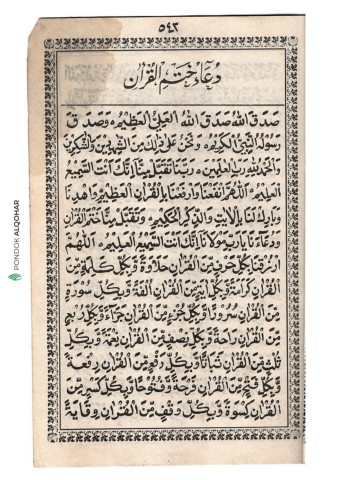 ٥٤٢
دُعَاءُ خَتْمِ الْقُرْاٰن
صَدَقَ اللهُ صَدَقَ اللهُ الْعَلِيُّ الْعَظِيْمُ وَصَدَقَ
رَسُوْلُهُ النَّبِيُّ الْكَرِيْمُ وَنَحْنُ عَلٰى ذٰلِكَ مِنَ الشّٰهِدِيْنَ وَالشّٰكِرِيْنَ
وَالْحَمْدُ لِلّٰهِ رَبِّ الْعٰلَمِيْنَ رَبَّنَا تَقَبَّلْ مِنَّا اِنَّكَ اَنْتَ السَّمِيْعُ
الْعَلِيْمُ اَللّٰهُمَّ انْفَعْنَا وَارْفَعْنَا بِالْقُرْاٰنِ الْعَظِيْمِ وَاهْدِنَا
وَبَارِكْ لَنَا بِالْاٰيٰتِ وَالذِّكْرِ الْحَكِيْمِ وَتَقَبَّلْ مِنَّا خَتْمَ الْقُرْاٰنِ
وَدُعَآءَنَا يَارَبِّ مَوْلَانَا اِنَّكَ اَنْتَ السَّمِيْعُ الْعَلِيْمُ اَللّٰهُمَّ
ارْزُقْنَا بِكُلِّ حَرْفٍ مِّنَ الْقُرْاٰنِ حَلَاوَةً وَبِكُلِّ كَلِمَةٍ مِّنَ
الْقُرْاٰنِ كَرَامَةً وَبِكُلِّ اٰيَةٍ مِّنَ الْقُرْاٰنِ اُلْفَةً وَبِكُلِّ سُوْرَةٍ
مِّنَ الْقُرْاٰنِ سُرُوْرًا وَبِكُلِّ جُزْءٍ مِّنَ الْقُرْاٰنِ جَزَآءً وَبِكُلِّ رُبْعٍ
مِّنَ الْقُرْاٰنِ رَاحَةً وَبِكُلِّ نِصْفٍ مِّنَ الْقُرْاٰنِ نِعْمَةً وَبِكُلِّ
ثُلُثٍ مِّنَ الْقُرْاٰنِ ثَبَاتًا وَبِكُلِّ رَفْعٍ مِّنَ الْقُرْاٰنِ رِفْعَةً
وَبِكُلِّ فَتْحٍ مِّنَ الْقُرْاٰنِ فَرْحَةً وَفُتُوْحًا وَبِكُلِّ كَسْرٍ مِّنَ
الْقُرْاٰنِ كِسْوَةً وَبِكُلِّ وَقْفٍ مِّنَ الْقُرْاٰنِ وِقَايَةً
PONDOK ALQOHAR